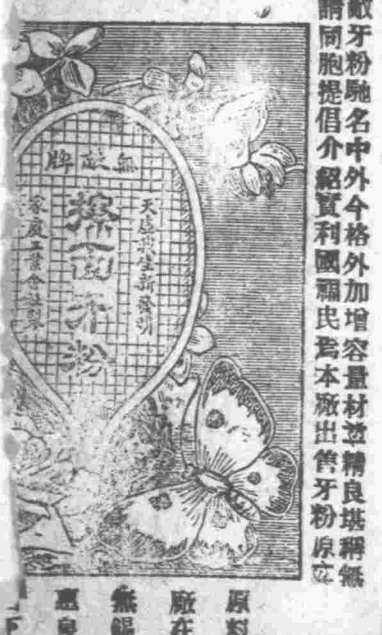 敵牙粉馳名中外今格外加增容量材精良堪稱無
請同胞提倡介紹實利國福民焉本廠出售牙粉原立
無敵牌
天虛我生新發明
擦面牙粉
家庭工業會社製
原料
廠在
無錫
惠泉